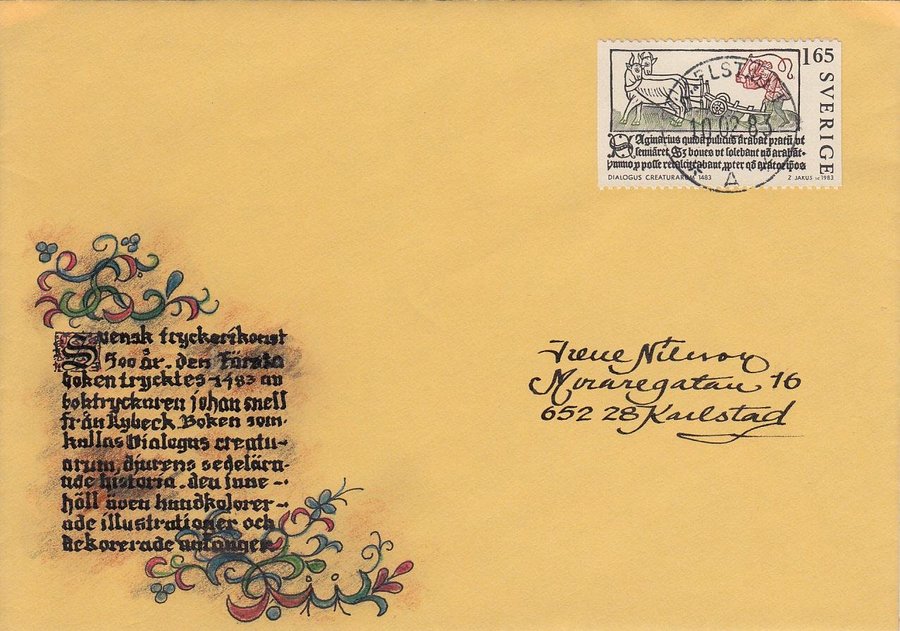 165
SVERIGE
ELST
10.02.83
A
Saginarius quidā publicus arabat pratū vt
semiāret. Sz boues vt solebant nō arabāt
DIALOGUS CREATURARUM 1483
Z JAKUS SC 1983
Svensk tryckerikonst
500 år. den Första
boken trycktes 1483 av
boktryckaren johan snell
från Lybeck. Boken som
kallas Dialogus creatu-
arum, djurens sedelära-
nde historia. den inne-
höll även handkolorer-
ade illustrationer och
dekorerade anfanger.
Irene Nilsson
Moraregatan 16
652 28 Karlstad